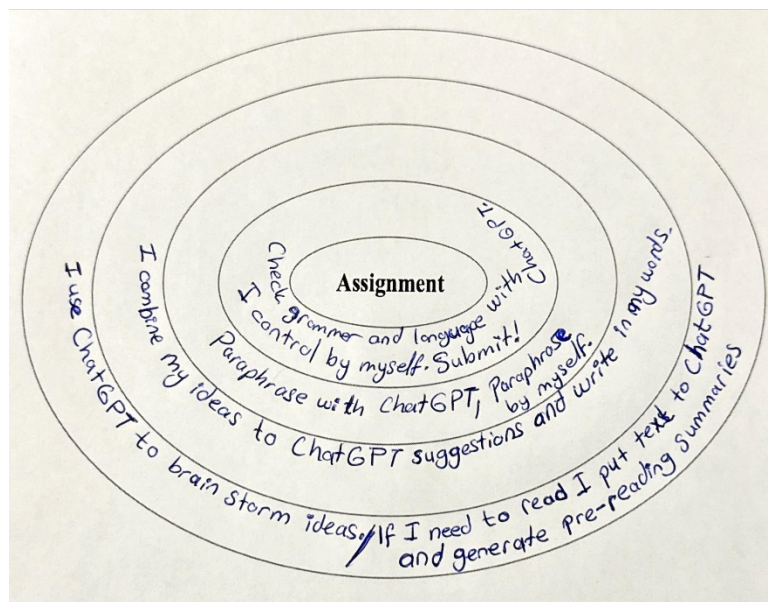 Assignment
Check grammer and language with ChatGPT.
I control by myself. Submit!
Paraphrase with ChatGPT, Paraphrase
by myself.
I combine my ideas to ChatGPT suggestions and write in my words.
I use ChatGPT to brain storm ideas. / If I need to read I put text to ChatGPT
and generate pre-reading summaries